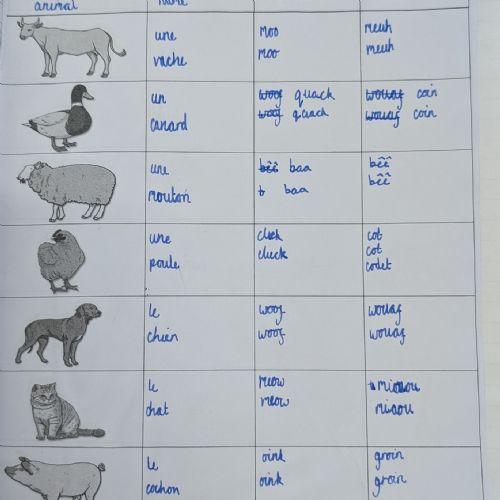 animal
une moo meuh
vache moo meuh
un woof quack wouaf coin
canard woof quack wouaf coin
une bêê baa bêê
mouton b baa bêê
une cluck cot
poule cluck cot
codet
le woof wouaf
chien woof wouaf
le meow miaou
chat meow miaou
le oink groin
cochon oink groin